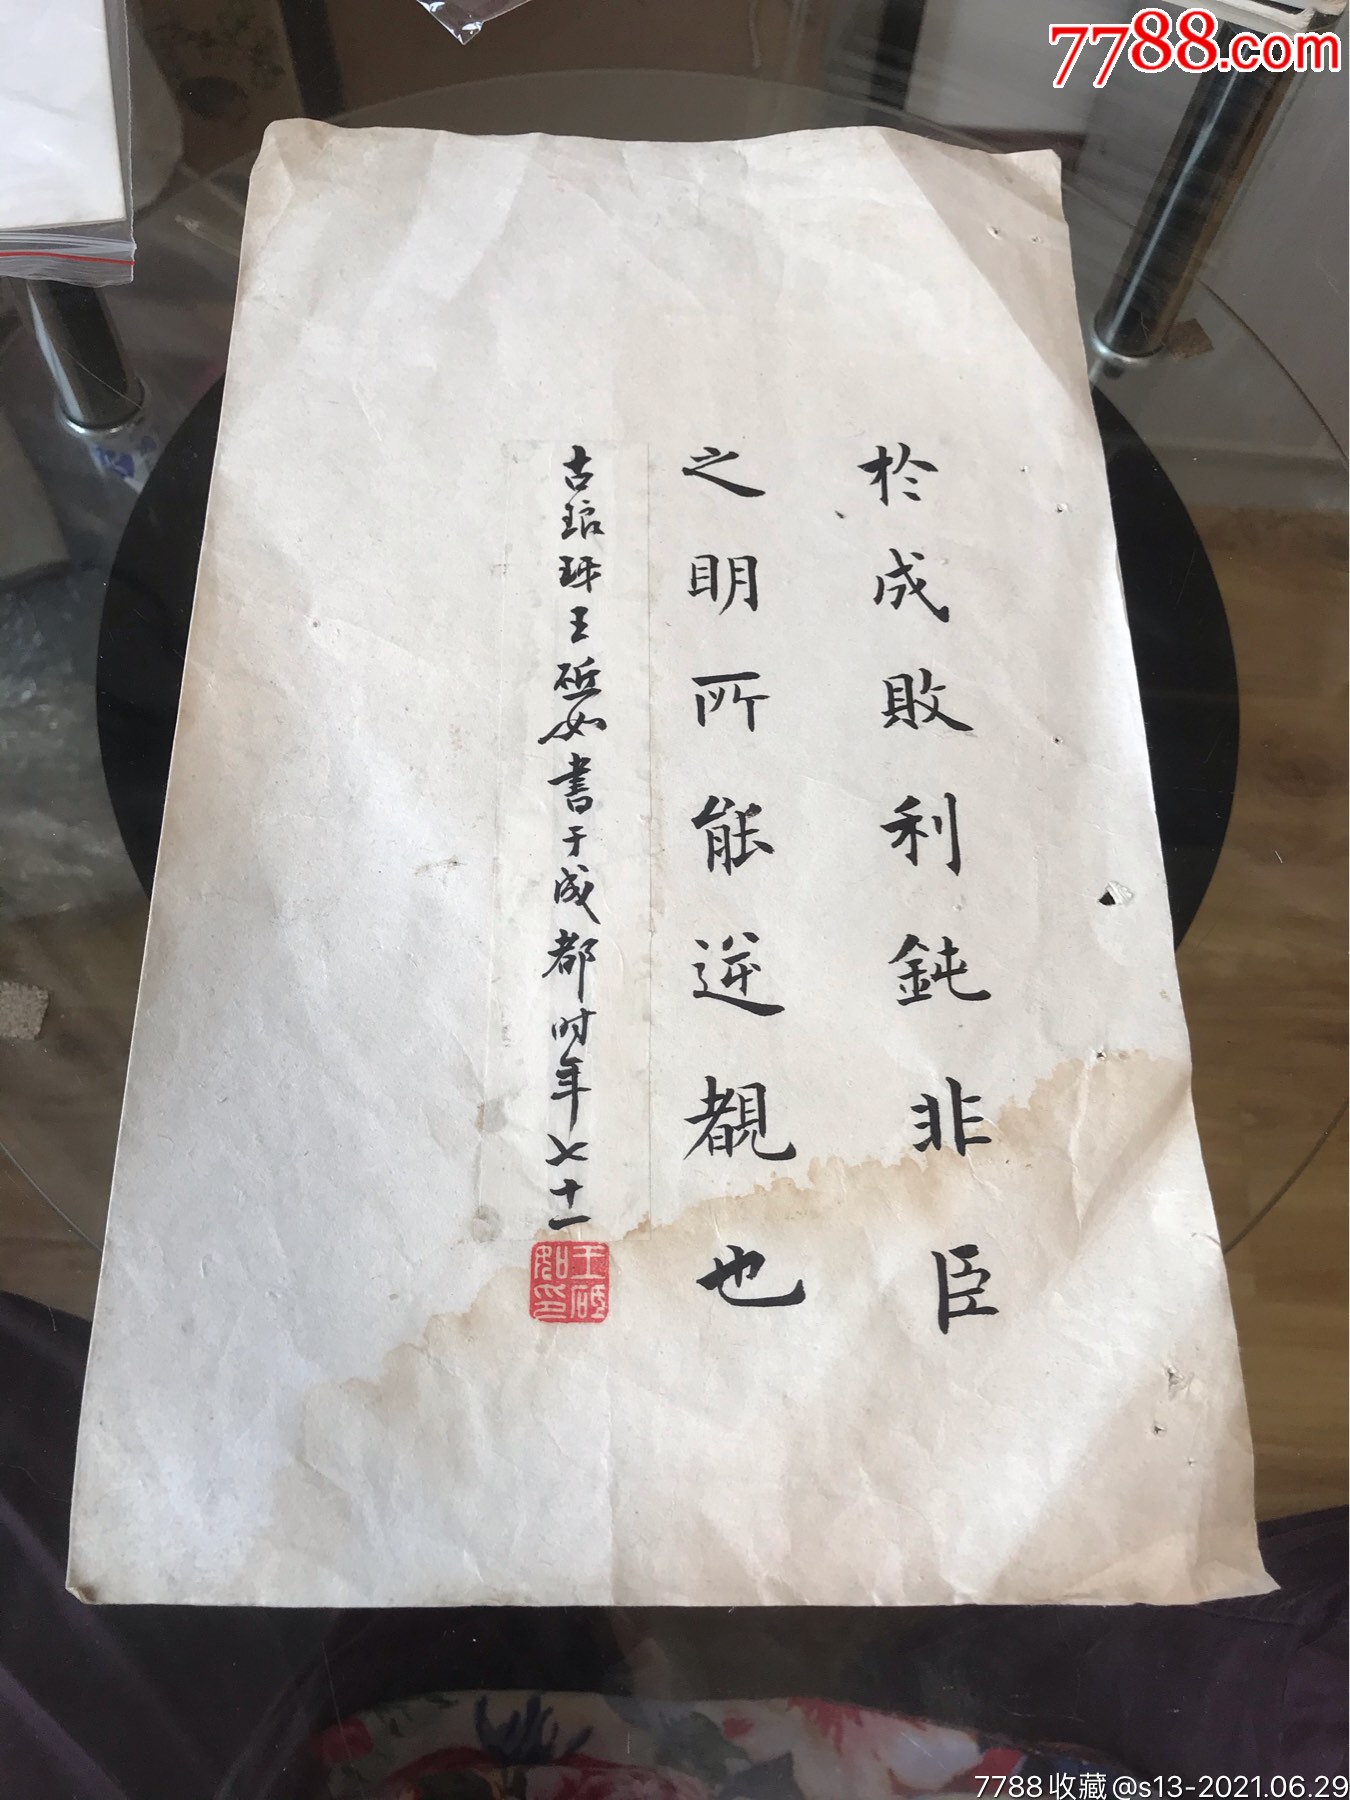 7788.com
於成敗利鈍非臣
之明所能逆覩也
古琅玡王砥如書于成都时年七十一
王砥如印
7788收藏@s13-2021.06.29